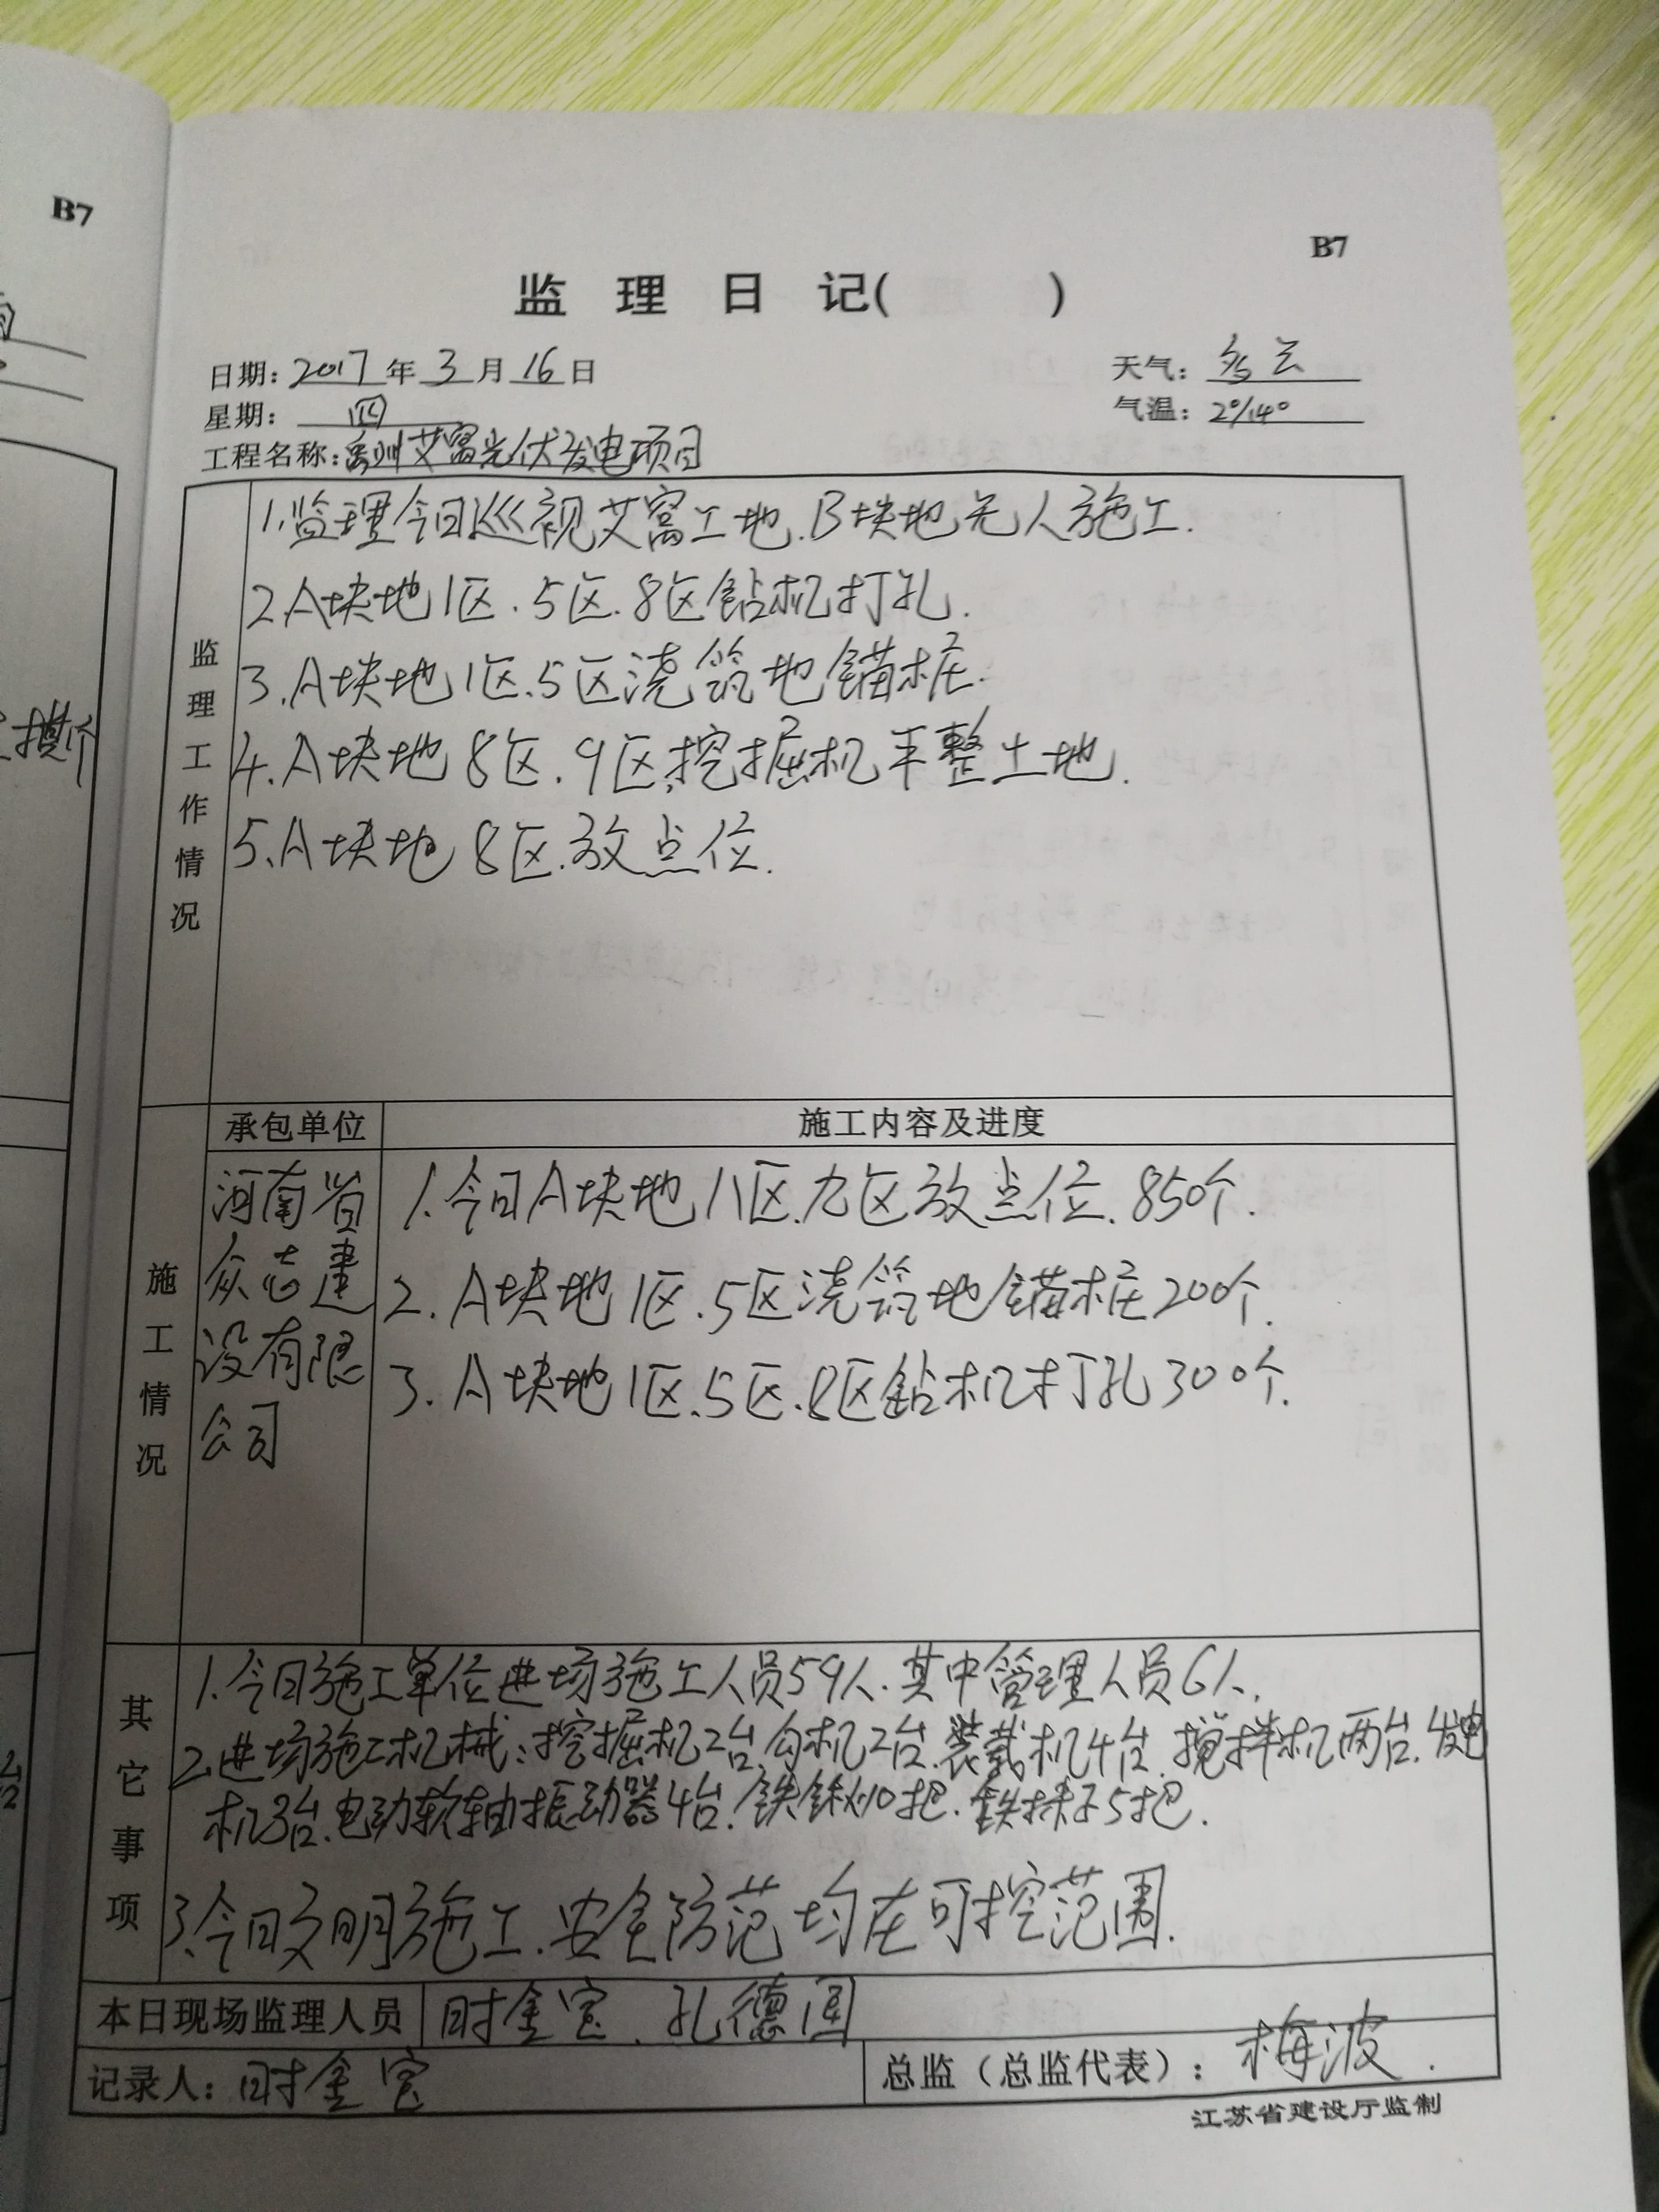 B7
B7
监 理 日 记( )
日期: 2017 年 3 月 16 日
天气: 多云
星期: 四
气温: 2°/14°
工程名称: 禹州艾窝光伏发电项目
监理工作情况
1.监理今日巡视艾窝工地.B块地无人施工.
2.A块地1区.5区.8区钻机打孔.
3.A块地1区.5区浇筑地锚桩.
4.A块地8区.9区挖掘机平整土地.
5.A块地8区.放点位.
承包单位
施工内容及进度
施工情况
河南省
众志建
设有限
公司
1.今日A块地八区.九区放点位.850个.
2.A块地1区.5区浇筑地锚桩200个.
3.A块地1区.5区.8区钻机打孔300个.
其它事项
1.今日施工单位进场施工人员59人.其中管理人员6人.
2.进场施工机械:挖掘机2台.勾机2台.装载机4台.搅拌机两台.发电
机3台.电动软轴振动器4台.铁锹10把.铁抹子5把.
3.今日文明施工.安全防范均在可控范围.
本日现场监理人员 时金宝.孔德国
记录人: 时金宝
总监（总监代表）: 梅波.
江苏省建设厅监制